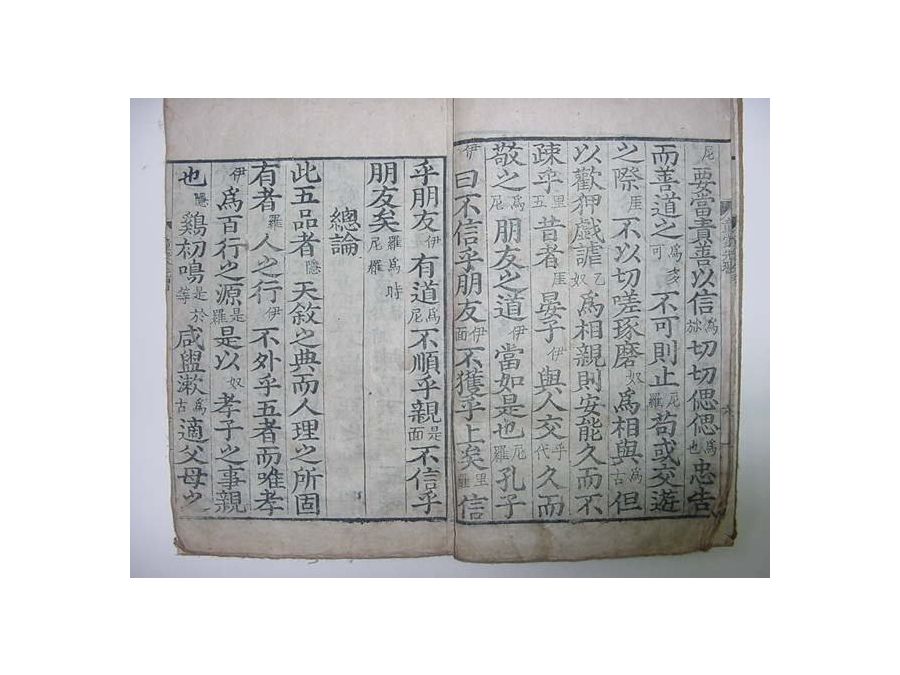 尼要當責善以信爲㫆切切偲偲爲也忠告
而善道之爲多可不可則止尼羅苟或交遊
之際厓不以切嗟琢磨奴爲相與爲古但
以歡狎戲謔乙奴爲相親則安能久而不
疎乎里五昔者厓晏子伊與人交乎代久而
敬之爲尼朋友之道伊當如是也尼羅孔子
伊曰不信乎朋友伊面不獲乎上矣里羅信
乎朋友伊有道爲尼不順乎親是面不信乎
朋友矣羅爲時尼羅
總論
此五品者隱天敘之典而人理之所固
有者羅人之行伊不外乎五者而唯孝
伊爲百行之源是羅是以奴孝子之事親
也隱鷄初鳴是於等咸盥漱爲古適父母之